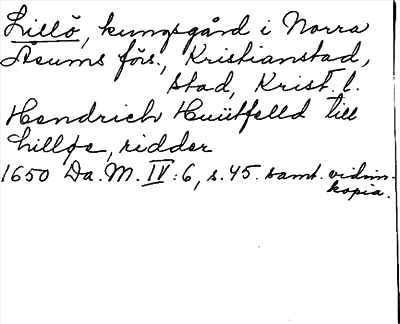 Lillö, kungsgård i Norra
Åsums förs., Kristianstad,
stad, Krist. l.
Hendrich Huütfelld till
Lilløe, ridder
1650 Da. M. IV: 6, s. 45. samt. vidim.
kopia.